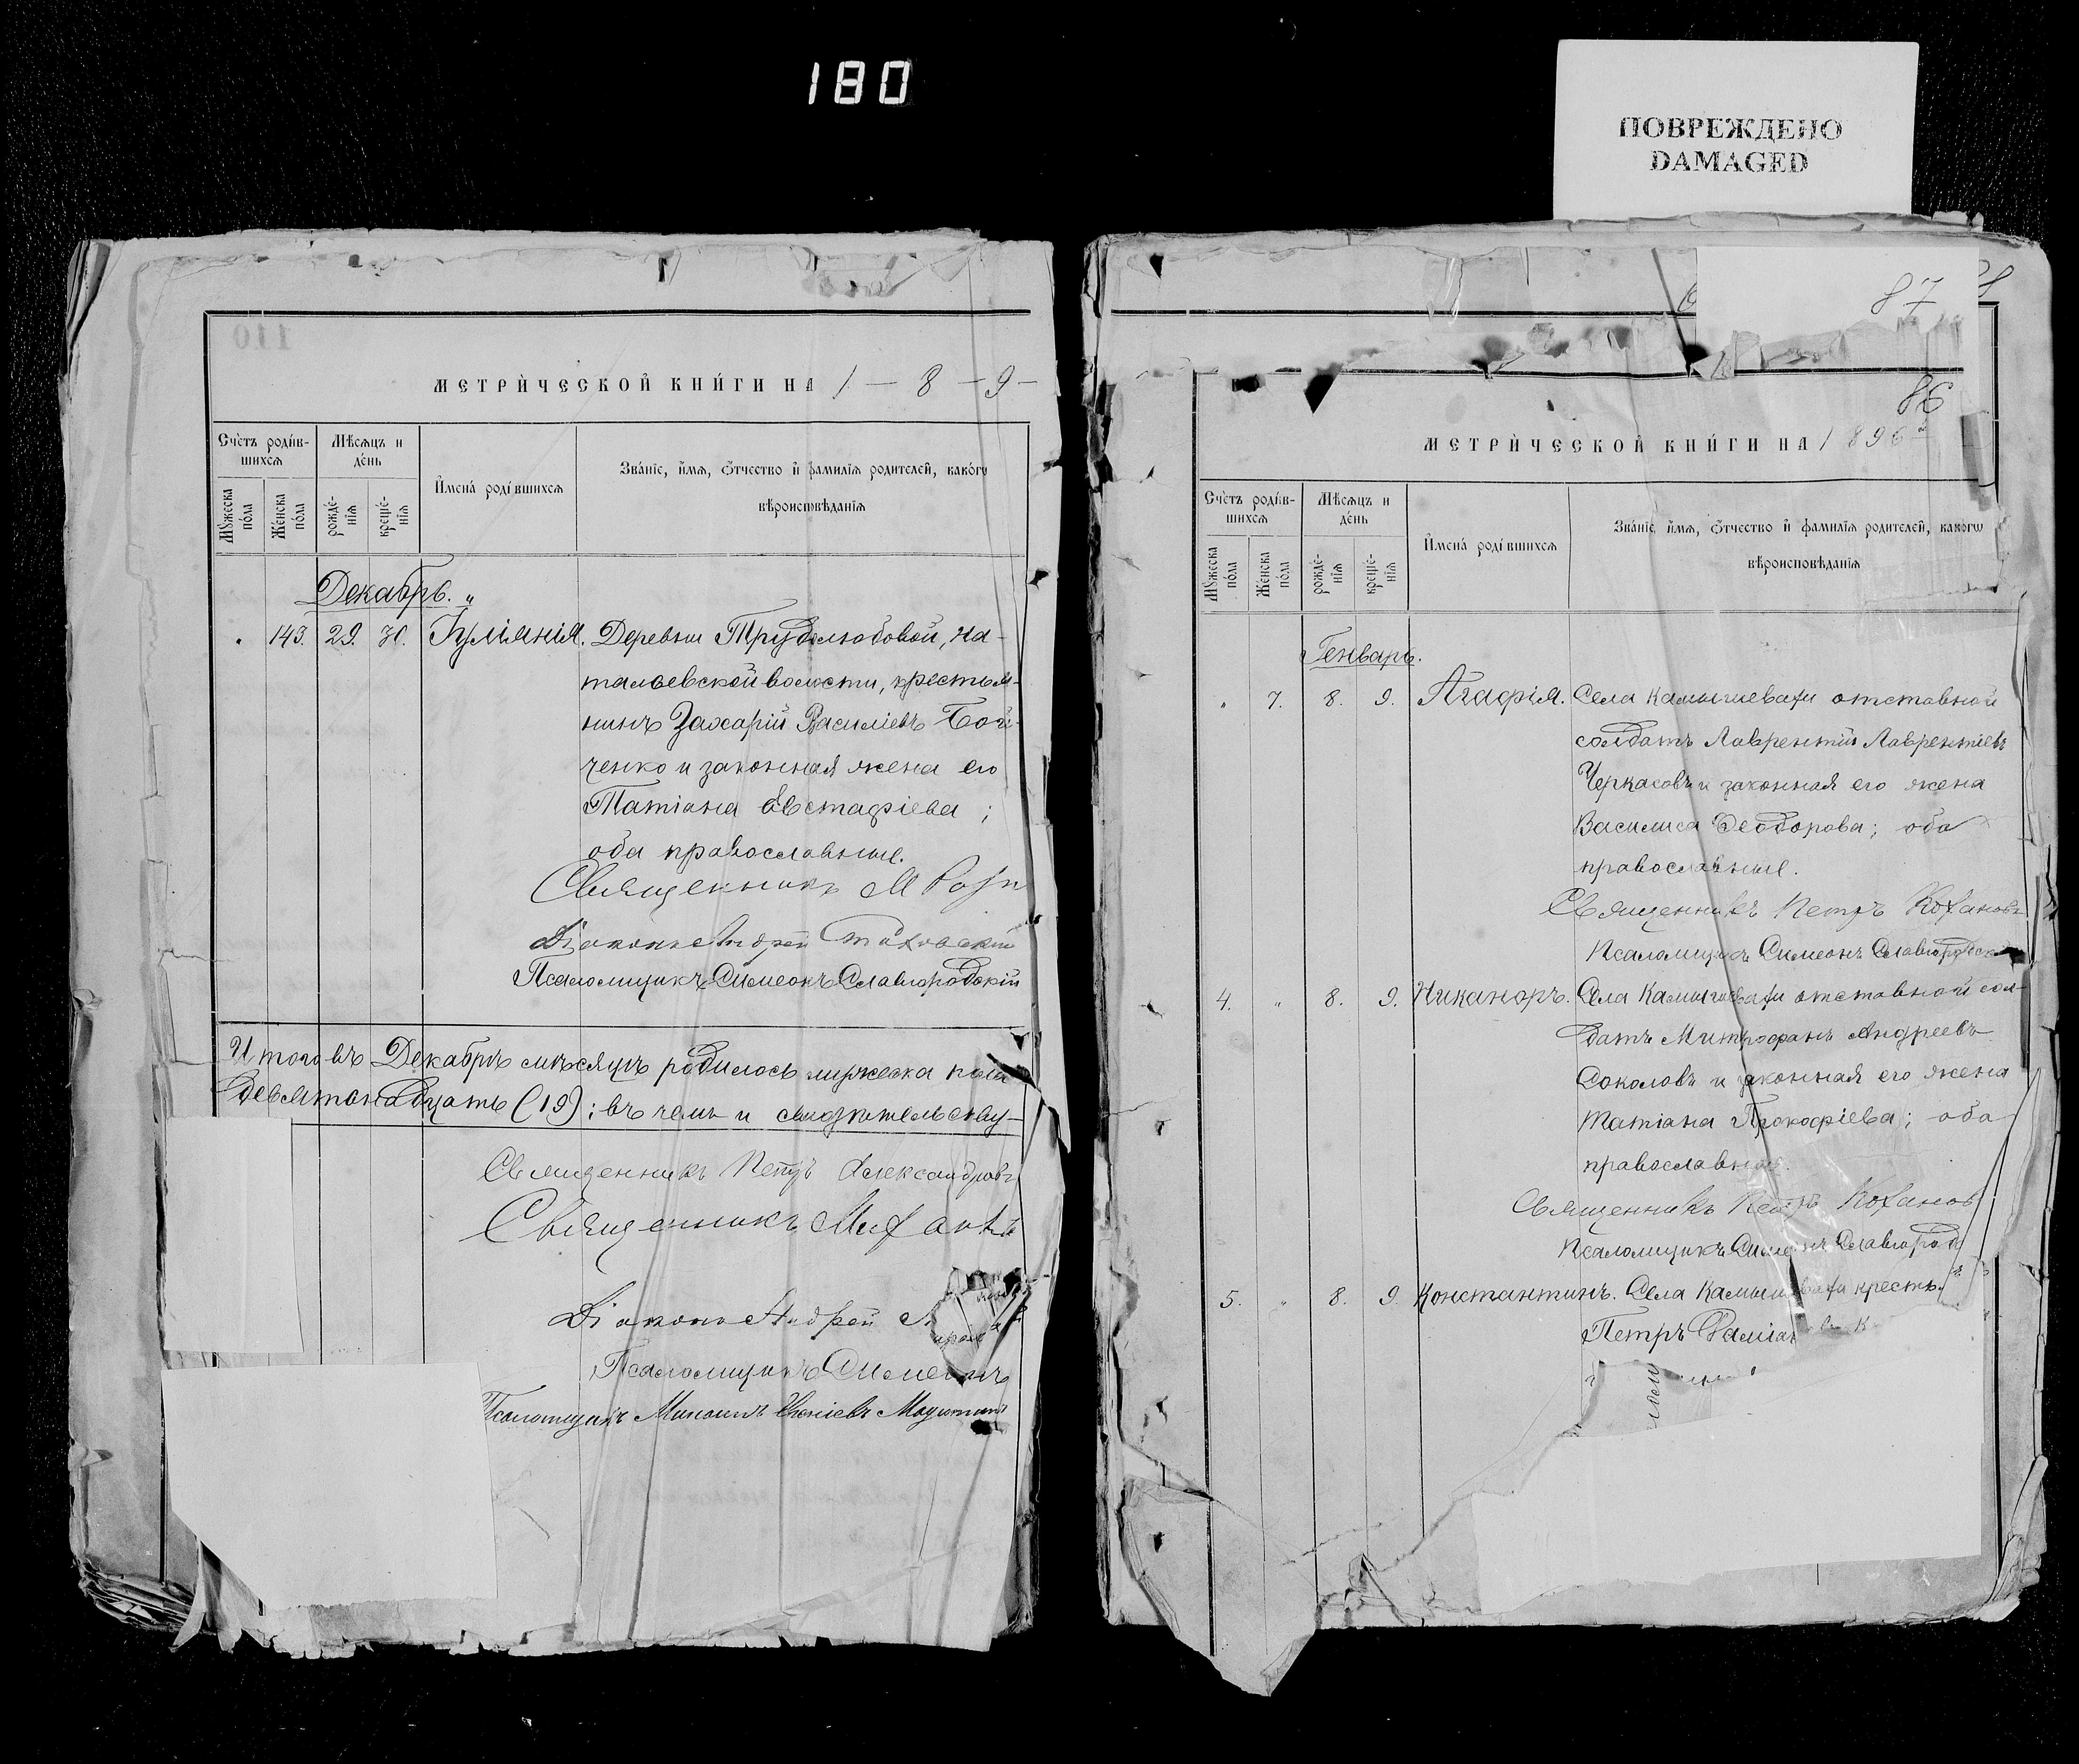 180
ПОВРЕЖДЕНО
DAMAGED
110
МЕТРИ́ЧЕСКОЙ КНИ́ГИ НА 1 — 8 — 9 —
Сче́тъ роди́в-
шихсѧ
Мѣ́сѧцъ и
де́нь
И҆мена̀ роди́вшихсѧ
Зва́нїе, и҆́мѧ, ѻ҆́тчество и҆ фами́лїѧ роди́телей, како́гѡ
вѣроисповѣ́данїѧ
Мꙋ́жеска
по́ла
Же́нска
по́ла
рожде́-
нїѧ
креще́-
нїѧ
Декабрь. „
„ 143. 29. 30. Іуліанія. Деревни Трудолюбовой, На-
тальевской волости, крестья-
нинъ Захарій Василіевъ Бой-
ченко и законная жена его
Татіана Евстафіева;
оба православные.
Священникъ М
Діаконъ Андрей
Псаломщикъ Симеонъ Славгородскій
Итого въ Декабрѣ мѣсяцѣ родилось мужеска пола
девятнадцать (19); въ чемъ и свидѣтельству-
Священникъ Петръ Александровъ
Священникъ
Діаконъ Андрей
Псаломщикъ Симеонъ
Псаломщикъ Михаилъ
87
86
МЕТРИ́ЧЕСКОЙ КНИ́ГИ НА 1896
Сче́тъ роди́в-
шихсѧ
Мѣ́сѧцъ и
де́нь
И҆мена̀ роди́вшихсѧ
Зва́нїе, и҆́мѧ, ѻ҆́тчество и҆ фами́лїѧ роди́телей, како́гѡ
вѣроисповѣ́данїѧ
Мꙋ́жеска
по́ла
Же́нска
по́ла
рожде́-
нїѧ
креще́-
нїѧ
Генварь.
„ 7. 8. 9. Агафія. Села Камышевахи отставной
солдатъ Лаврентій Лаврентіевъ
Черкасовъ и законная его жена
Василиса Ѳеодорова; оба
православные.
Священникъ Петръ Кохановъ
Псаломщикъ Симеонъ Славгородск
4. „ 8. 9. Никаноръ. Села Камышевахи отставной сол-
датъ Митрофанъ Андреевъ
Соколовъ и законная его жена
Татіана Прокофіева; оба
православные.
Священникъ Петръ Коханов
Псаломщикъ Симеонъ Славгород
5. „ 8. 9. Константинъ. Села Камышевахи крестья
Петръ